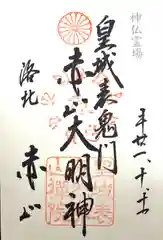 神仏霊場
皇城表鬼門
赤山大明神
洛北
赤山
平廿一、十、